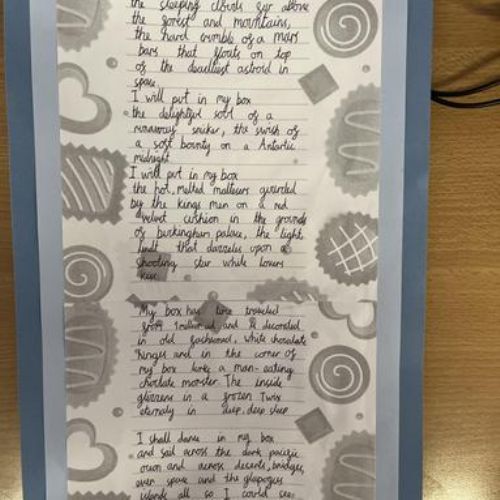 the sleeping clouds far above
the forest and mountains,
the hard crumble of a mars
bars that floats on top
of the deadliest astroid in
space
I will put in my box
the delightful soot of a
runaway sniker, the swish of
a soft bounty on a Antartic
midnight
I will put in my box
the hot, melted maltesers guarded
by the kings men on a red
velvet cushion in the grounds
of buckingham palace, the light
that dazzeles upon a
shooting star while lovers
kiss.
My box has time traveled
from and is decorated
in old fashioned, white chocolate
hinges and in the corner of
my box lurks a man-eating
choclate monster. The inside
glistens in a frozen Twix
eternaly in deep, deep sleep
I shall dance in my box
and sail across the dark pacific
ocean and across deserts, bridges,
over space and the glapogus
islands all so I could see